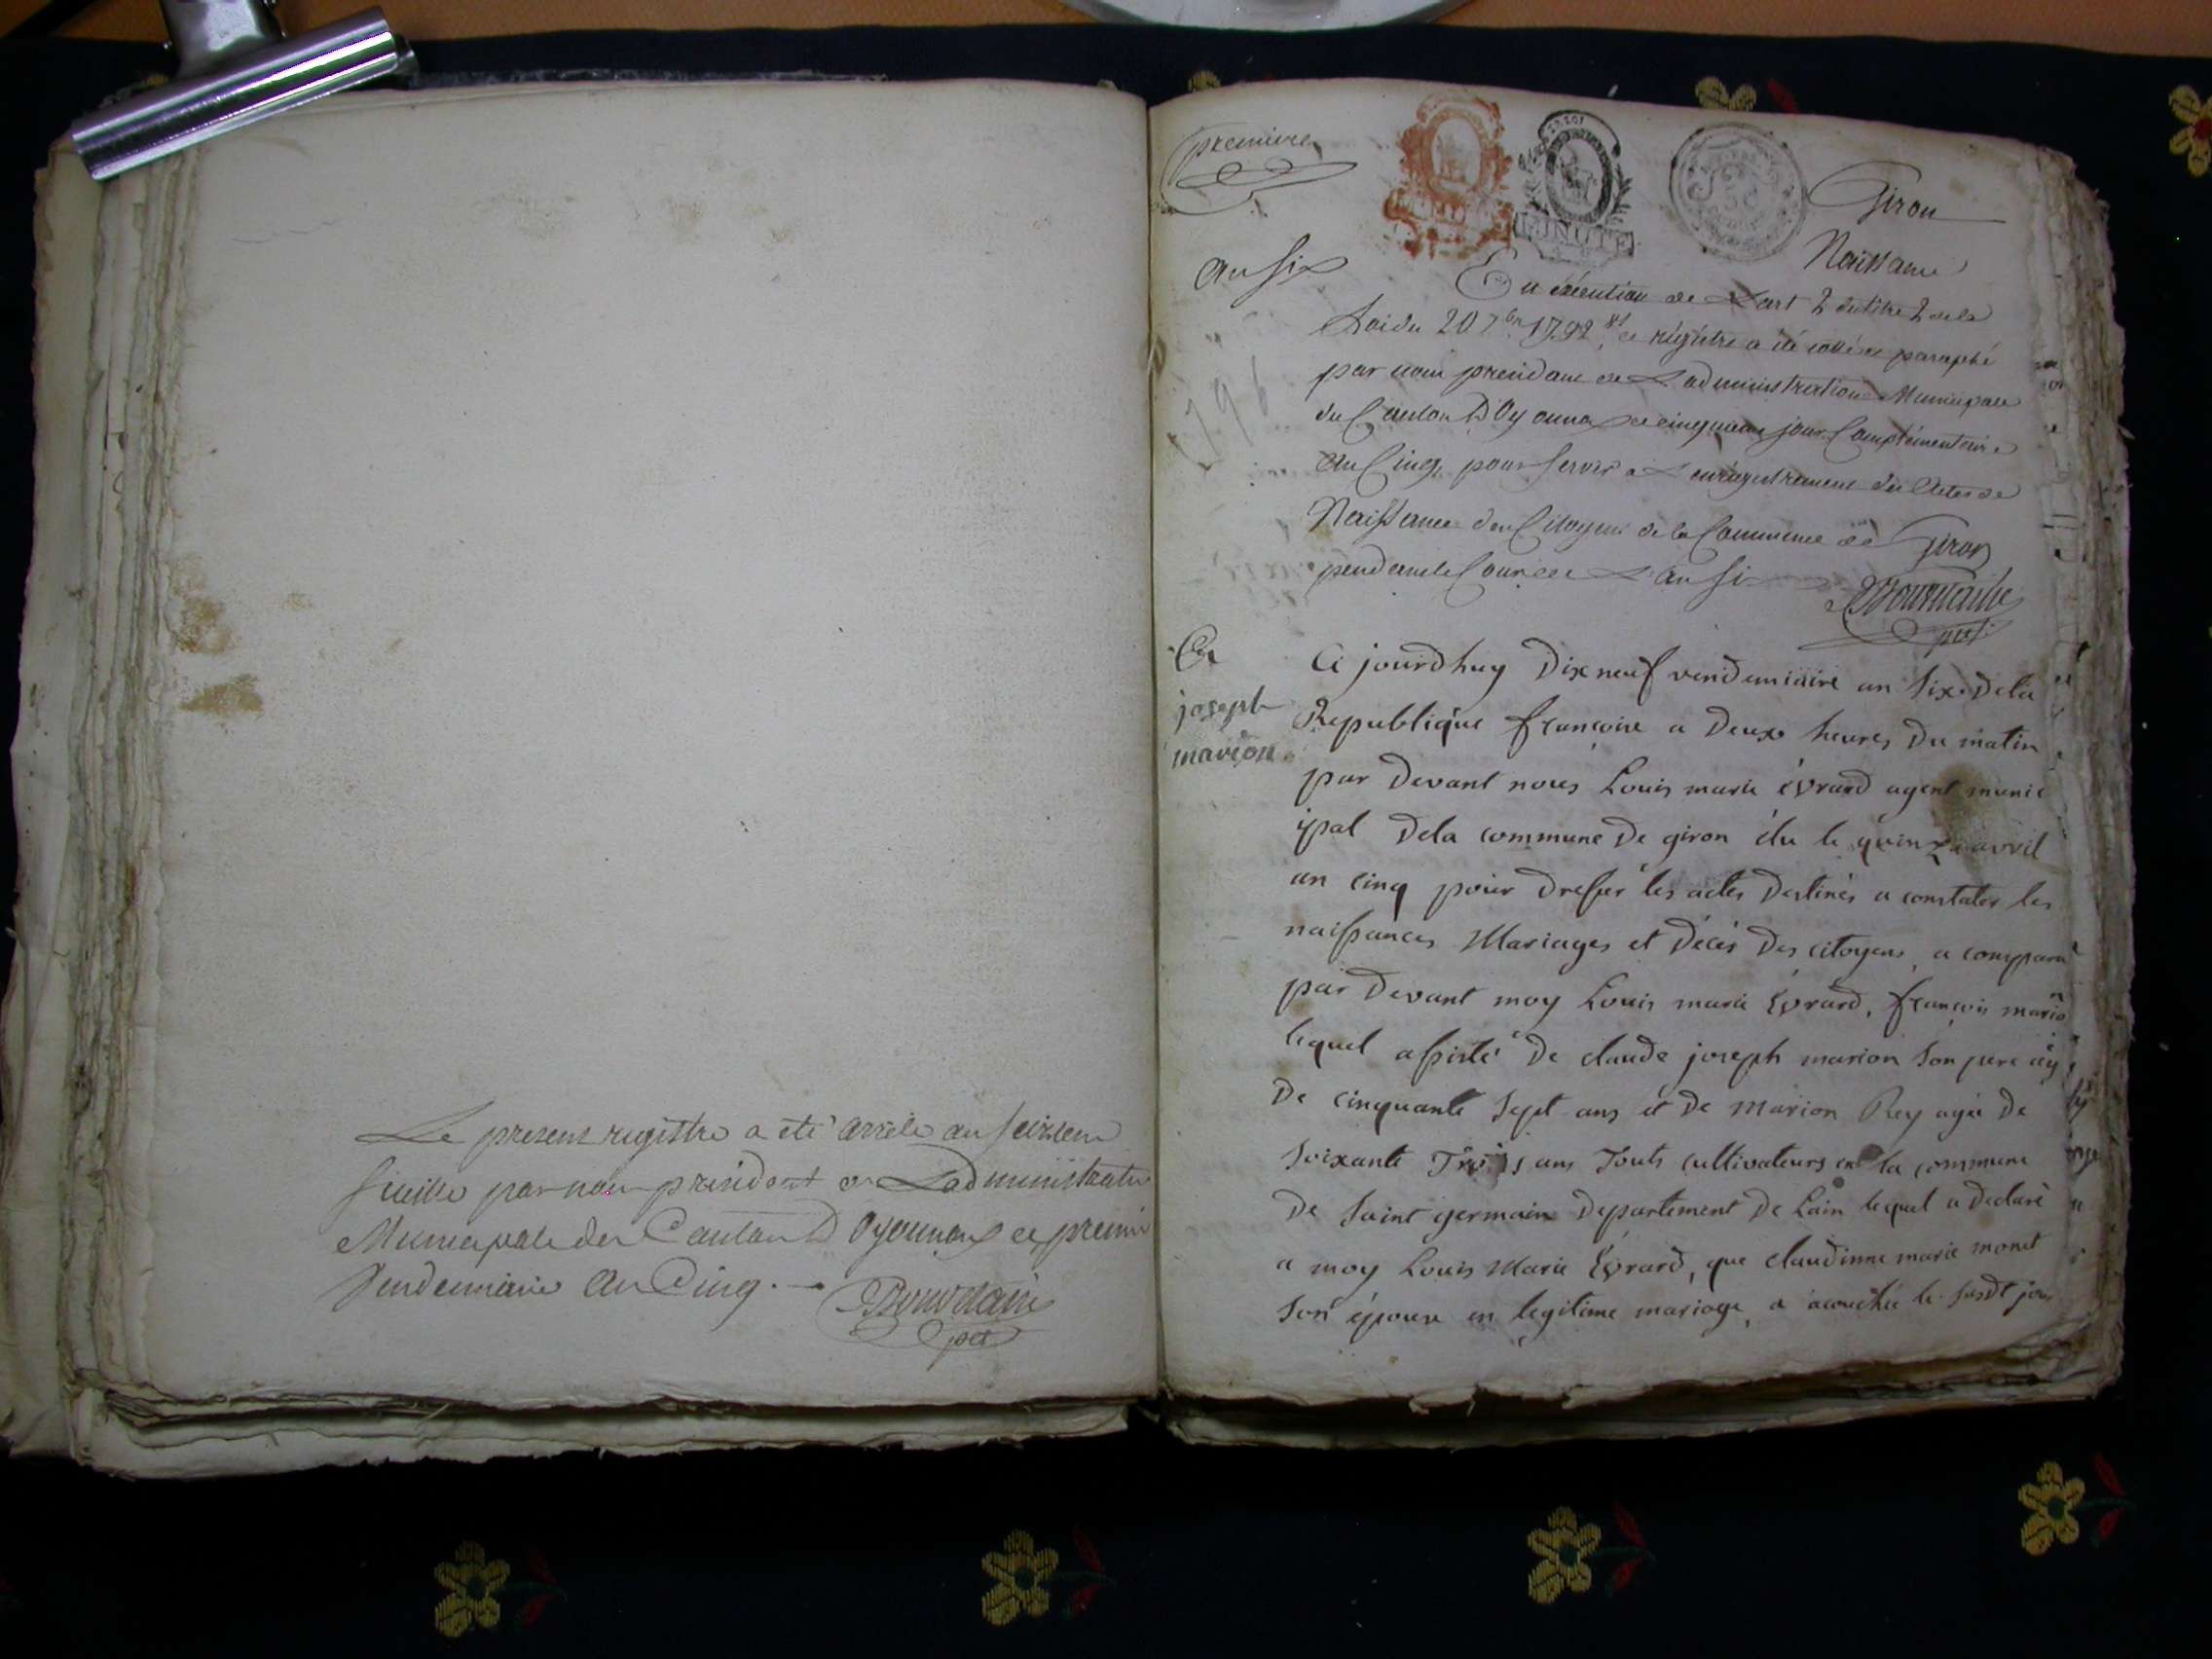 Le present registre a eté arrete au seizieme
feuille par nous président de Ladministration
Municipale du Canton D'Oyonnax ce premier
Vendemiaire an Cinq.
pdt
premiere
MINUTE
Giron
an Six
Naissance
En éxécution de L'art 2 du titre 2 de la
Loi du 20 7bre 1792 ce régistre a été cotté et paraphé
par nous président de L'administration Municipale
du Canton D'Oyonnax ce cinquieme jour Complémentaire
an Cinq, pour servir a L'enrégistrement des Actes de
Naissance des Citoyens de la Commune de Giron
pendant le Cours de L'an Six
1796
joseph
marion
Ce jourdhuy Dix neuf vendemiaire an six Dela
Republique françoise a Deux heures Du matin
par Devant nous Louis marie évrard agent munic
ipal Dela commune De giron élu le quinze avril
an cinq pour dresser les actes Destinés a constater les
naissances Mariages et Décès Des citoyens, a comparu
par Devant moy Louis marie Evrard, françois mario
lequel assisté De claude joseph marion son pere agé
De cinquante sept ans et De marion Rey agée De
soixante Trois ans Touts cultivateurs en la commune
De saint germain Departement De Lain lequel a Declaré
a moy Louis Marie Evrard, que claudinne marie monet
son épouse en legitime mariage, a acouchée le susdt jour